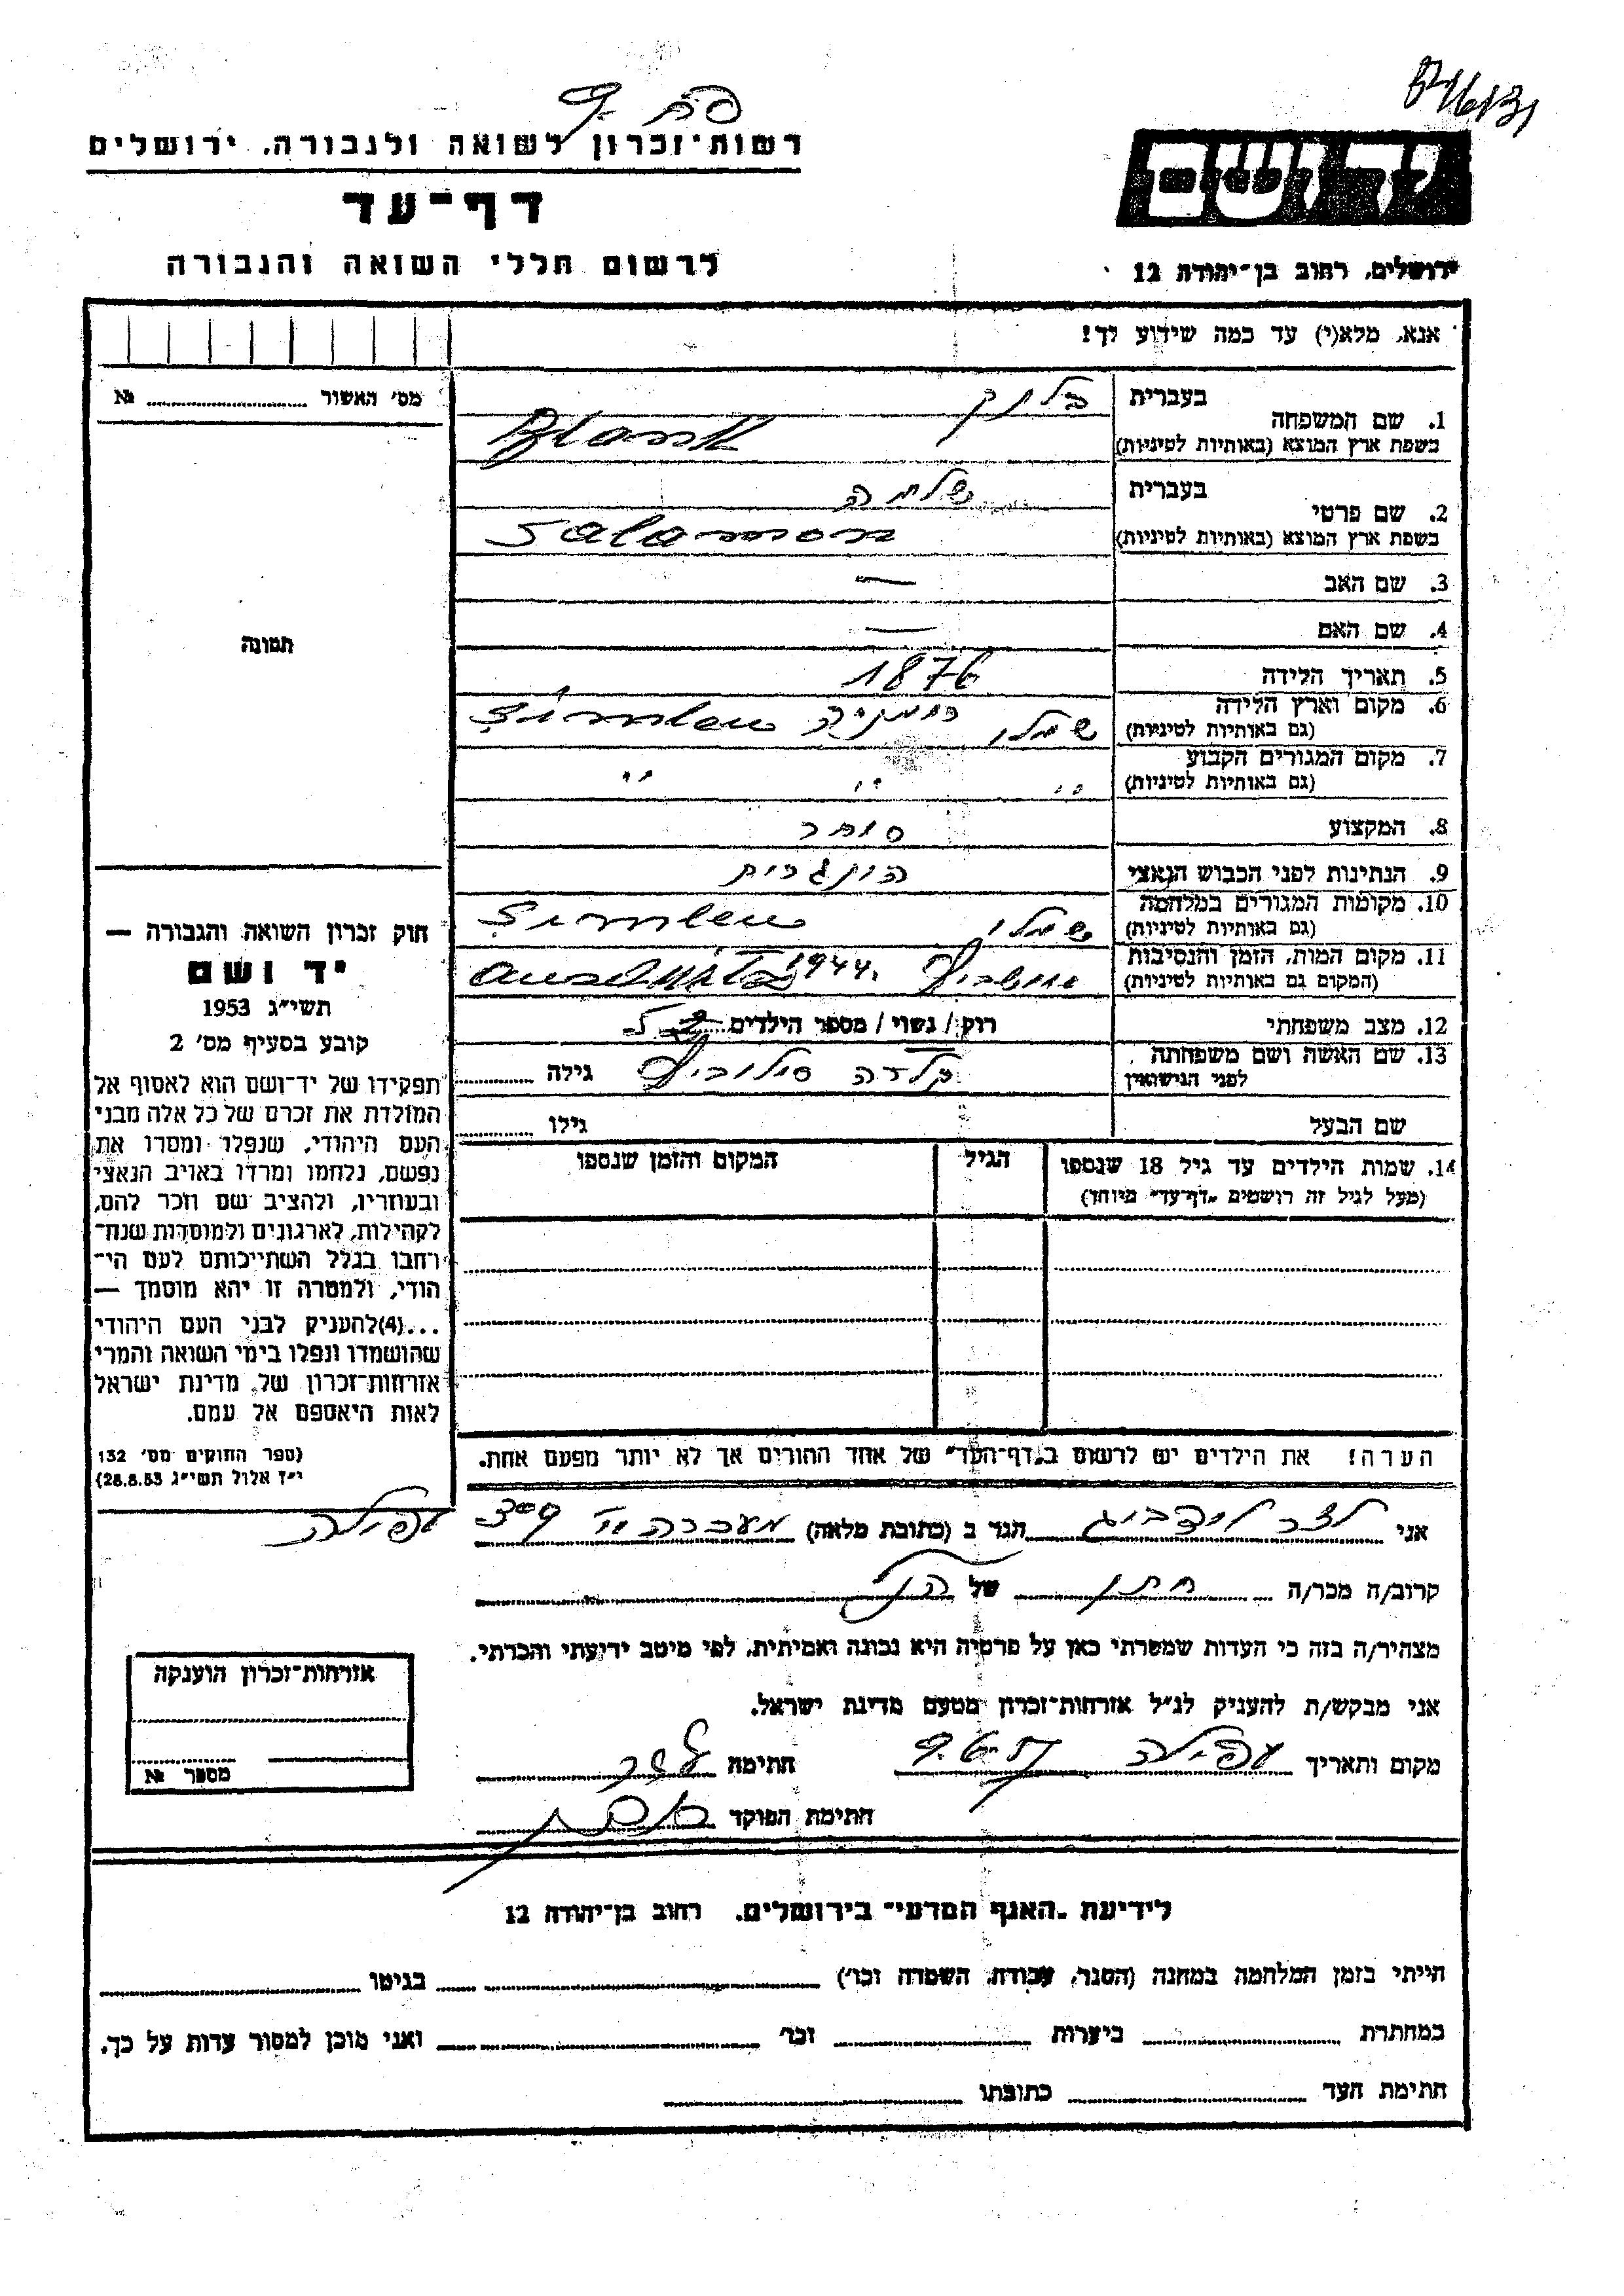 רשות־זכרון לשואה ולגבורה, ירושלים
דף־עד
לרשום חללי השואה והגבורה
יד ושם
ירושלים, רחוב בן־יהודה 12
אנא, מלא(י) עד כמה שידוע לך!
מס' האשור № 
1. שם המשפחה
בעברית בלנק
בשפת ארץ המוצא (באותיות לטיניות) Blank
2. שם פרטי
בעברית שלמה
בשפת ארץ המוצא (באותיות לטיניות) Salamon
3. שם האב —
4. שם האם —
5. תאריך הלידה 1876
6. מקום וארץ הלידה (גם באותיות לטיניות) שימלו רומניה Simleu
7. מקום המגורים הקבוע (גם באותיות לטיניות) " " "
8. המקצוע סוחר
9. הנתינות לפני הכבוש הנאצי הונגרית
10. מקומות המגורים במלחמה (גם באותיות לטיניות) שימלו Simleu
11. מקום המות, הזמן והנסיבות (המקום גם באותיות לטיניות) אושביץ 1944.
12. מצב משפחתי רוק / נשוי / מספר הילדים
13. שם האשה ושם משפחתה לפני הנישואין גילה
שם הבעל גילו
14. שמות הילדים עד גיל 18 שנספו
(מעל לגיל זה רושמים "דף־עד" מיוחד)
הגיל
המקום והזמן שנספו
הערה! את הילדים יש לרשום ב"דף־העד" של אחד ההורים אך לא יותר מפעם אחת.
תמונה
חוק זכרון השואה והגבורה —
יד ושם
תשי"ג 1953
קובע בסעיף מס' 2
תפקידו של יד־ושם הוא לאסוף אל
המולדת את זכרם של כל אלה מבני
העם היהודי, שנפלו ומסרו את
נפשם, נלחמו ומרדו באויב הנאצי
ובעוזריו, ולהציב שם וזכר להם,
לקהילות, לארגונים ולמוסדות שנח־
רחבו בגלל השתייכותם לעם הי־
הודי, ולמטרה זו יהא מוסמך —
...(4)להעניק לבני העם היהודי
שהושמדו ונפלו בימי השואה והמרי
אזרחות־זכרון של מדינת ישראל
לאות היאספם אל עמם.
(ספר החוקים מס' 132
י"ז אלול תשי"ג 28.8.53)
אני הגר ב (כתובת מלאה) מעברה עפולה
קרוב/ה מכר/ה חתן של הנ"ל
מצהיר/ה בזה כי העדות שמסרתי כאן על פרטיה היא נכונה ואמיתית, לפי מיטב ידיעתי והכרתי.
אני מבקש/ת להעניק לנ"ל אזרחות־זכרון מטעם מדינת ישראל.
מקום ותאריך עפולה 9.6.57 חתימה
חתימת הפוקד
אזרחות־זכרון הוענקה
מספר №
לידיעת "האגף המדעי" בירושלים, רחוב בן־יהודה 12
הייתי בזמן המלחמה במחנה (הסגר, עבודה, השמדה וכו') בגיטו
במחתרת ביערות וכו' ואני מוכן למסור עדות על כך.
חתימת העד כתובתו